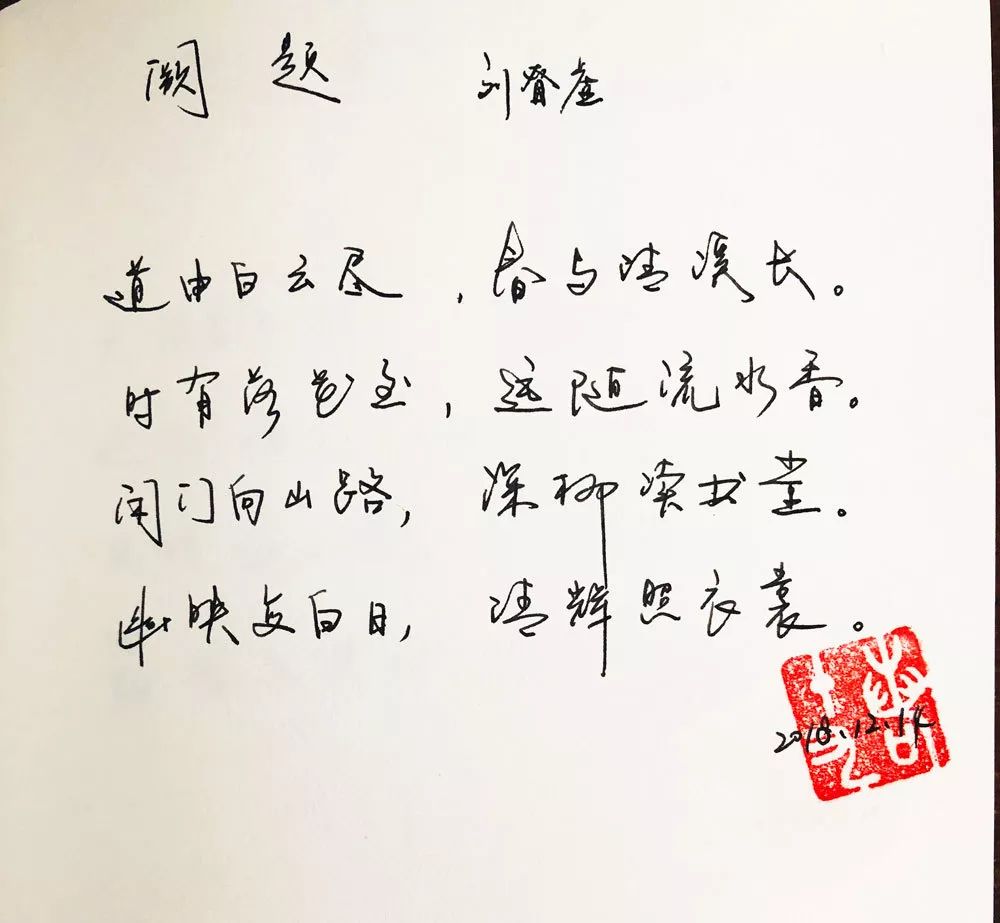 阙题 刘眘虚
道由白云尽,春与清溪长。
时有落花至,远随流水香。
闲门向山路,深柳读书堂。
幽映每白日,清辉照衣裳。
2018.12.14